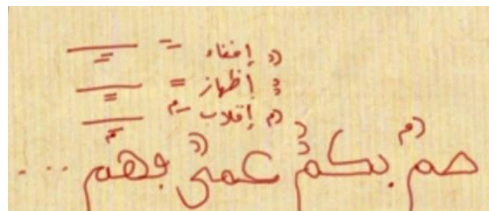 إخفاء
أظهار
إقلاب
صم بكم عمي فهم ...